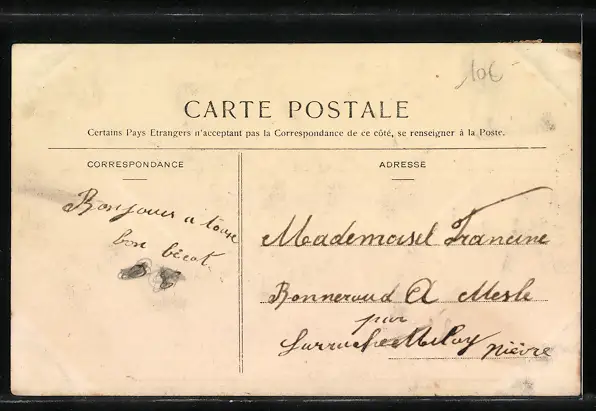 10€
CARTE POSTALE
Certains Pays Etrangers n'acceptant pas la Correspondance de ce côté, se renseigner à la Poste.
CORRESPONDANCE
Bonjour a
bon bécot
ADRESSE
Mademoisel Francine
Bonneraud A Mesle
par
Nièvre